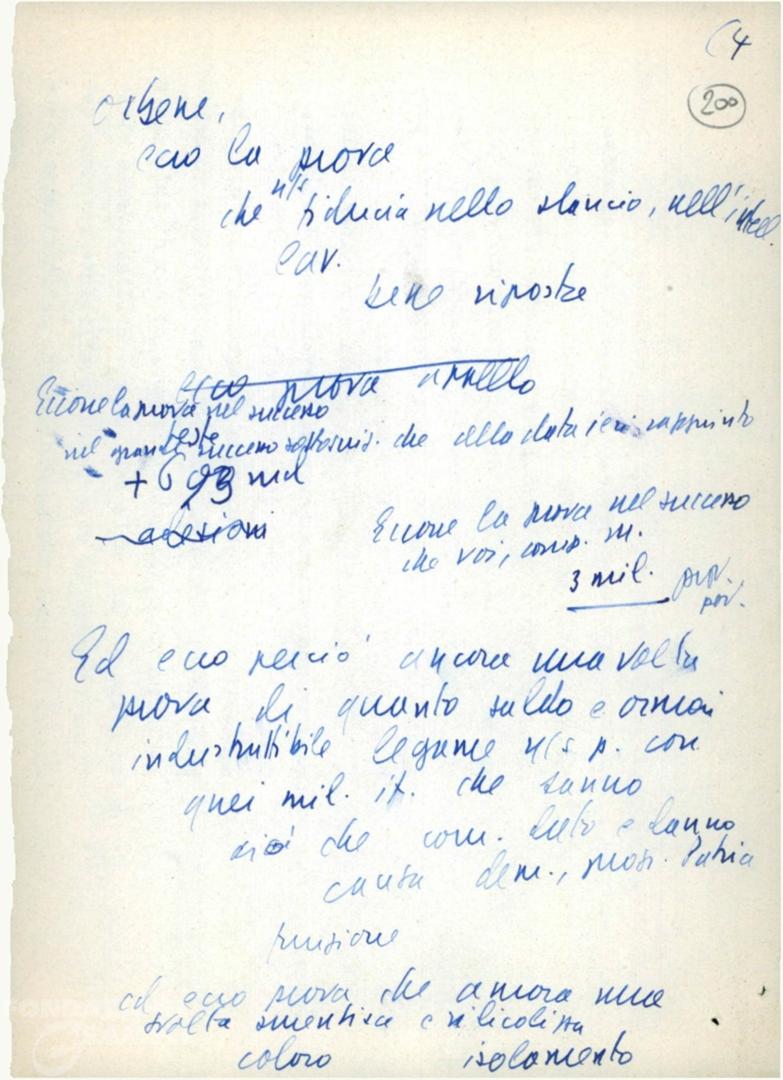 (4
200
orbene,
ecco la prova
n/s
che fiducia nello slancio, nell'intell.
lav.
bene riposta
Ecco prova appello
Eccone la prova nel successo
nel grande successo sottoscriz. che alla data ieri raggiunto
+ 6 mil
adesioni
Eccone la prova nel successo
che voi, comp. m.
3 mil.
Ed ecco perciò ancora una volta
prova di quanto saldo e ormai
indistruttibile legame n/s p. con
quei mil. it. che sanno
ciò che com. dato e danno
causa dem., pros. Patria
funzione
ed ecco prova che ancora una
volta smentisce e ridicolizza
coloro isolamento